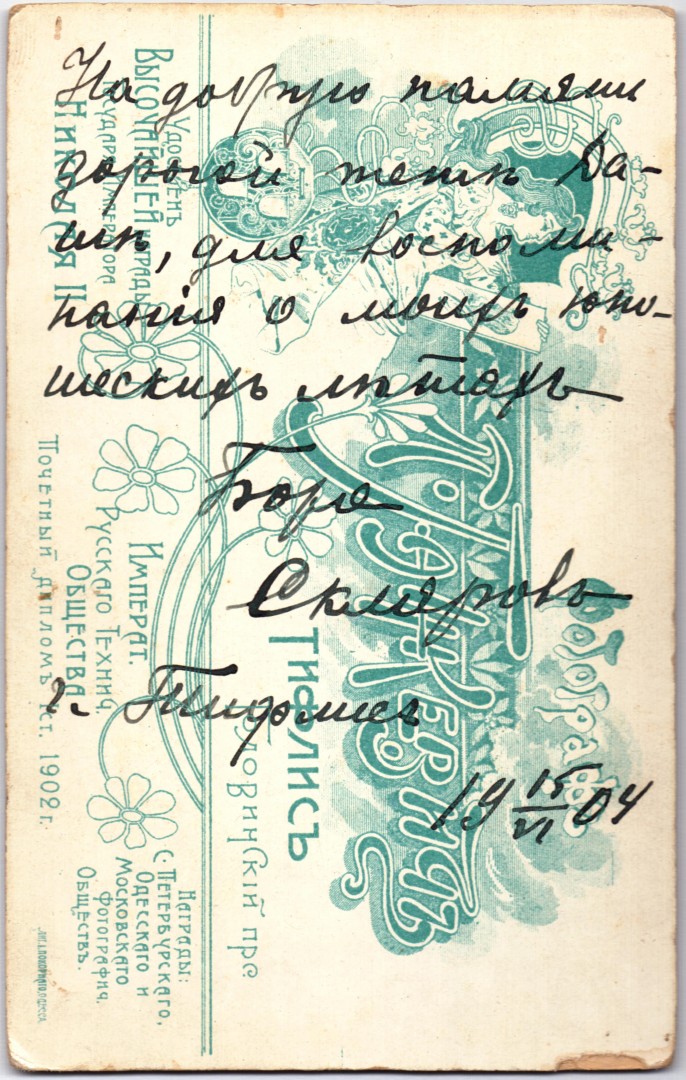 На добрую память
дорогой тетѣ Да-
шѣ, для воспоми-
нанія о моихъ юно-
шескихъ лѣтахъ
Боря
Скляровъ
г. Тифлисъ
19 15/VI 04
Фотографія
Тифлисъ
Головинскій пр
Удостоенъ
Высочайшей награды
Государя Императора
Николая II
Императ.
Русскаго Технич.
Общества
Почетный дипломъ 1902 г.
Награды:
С. Петербургскаго,
Одесскаго и
Московскаго
фотографич.
Обществъ.